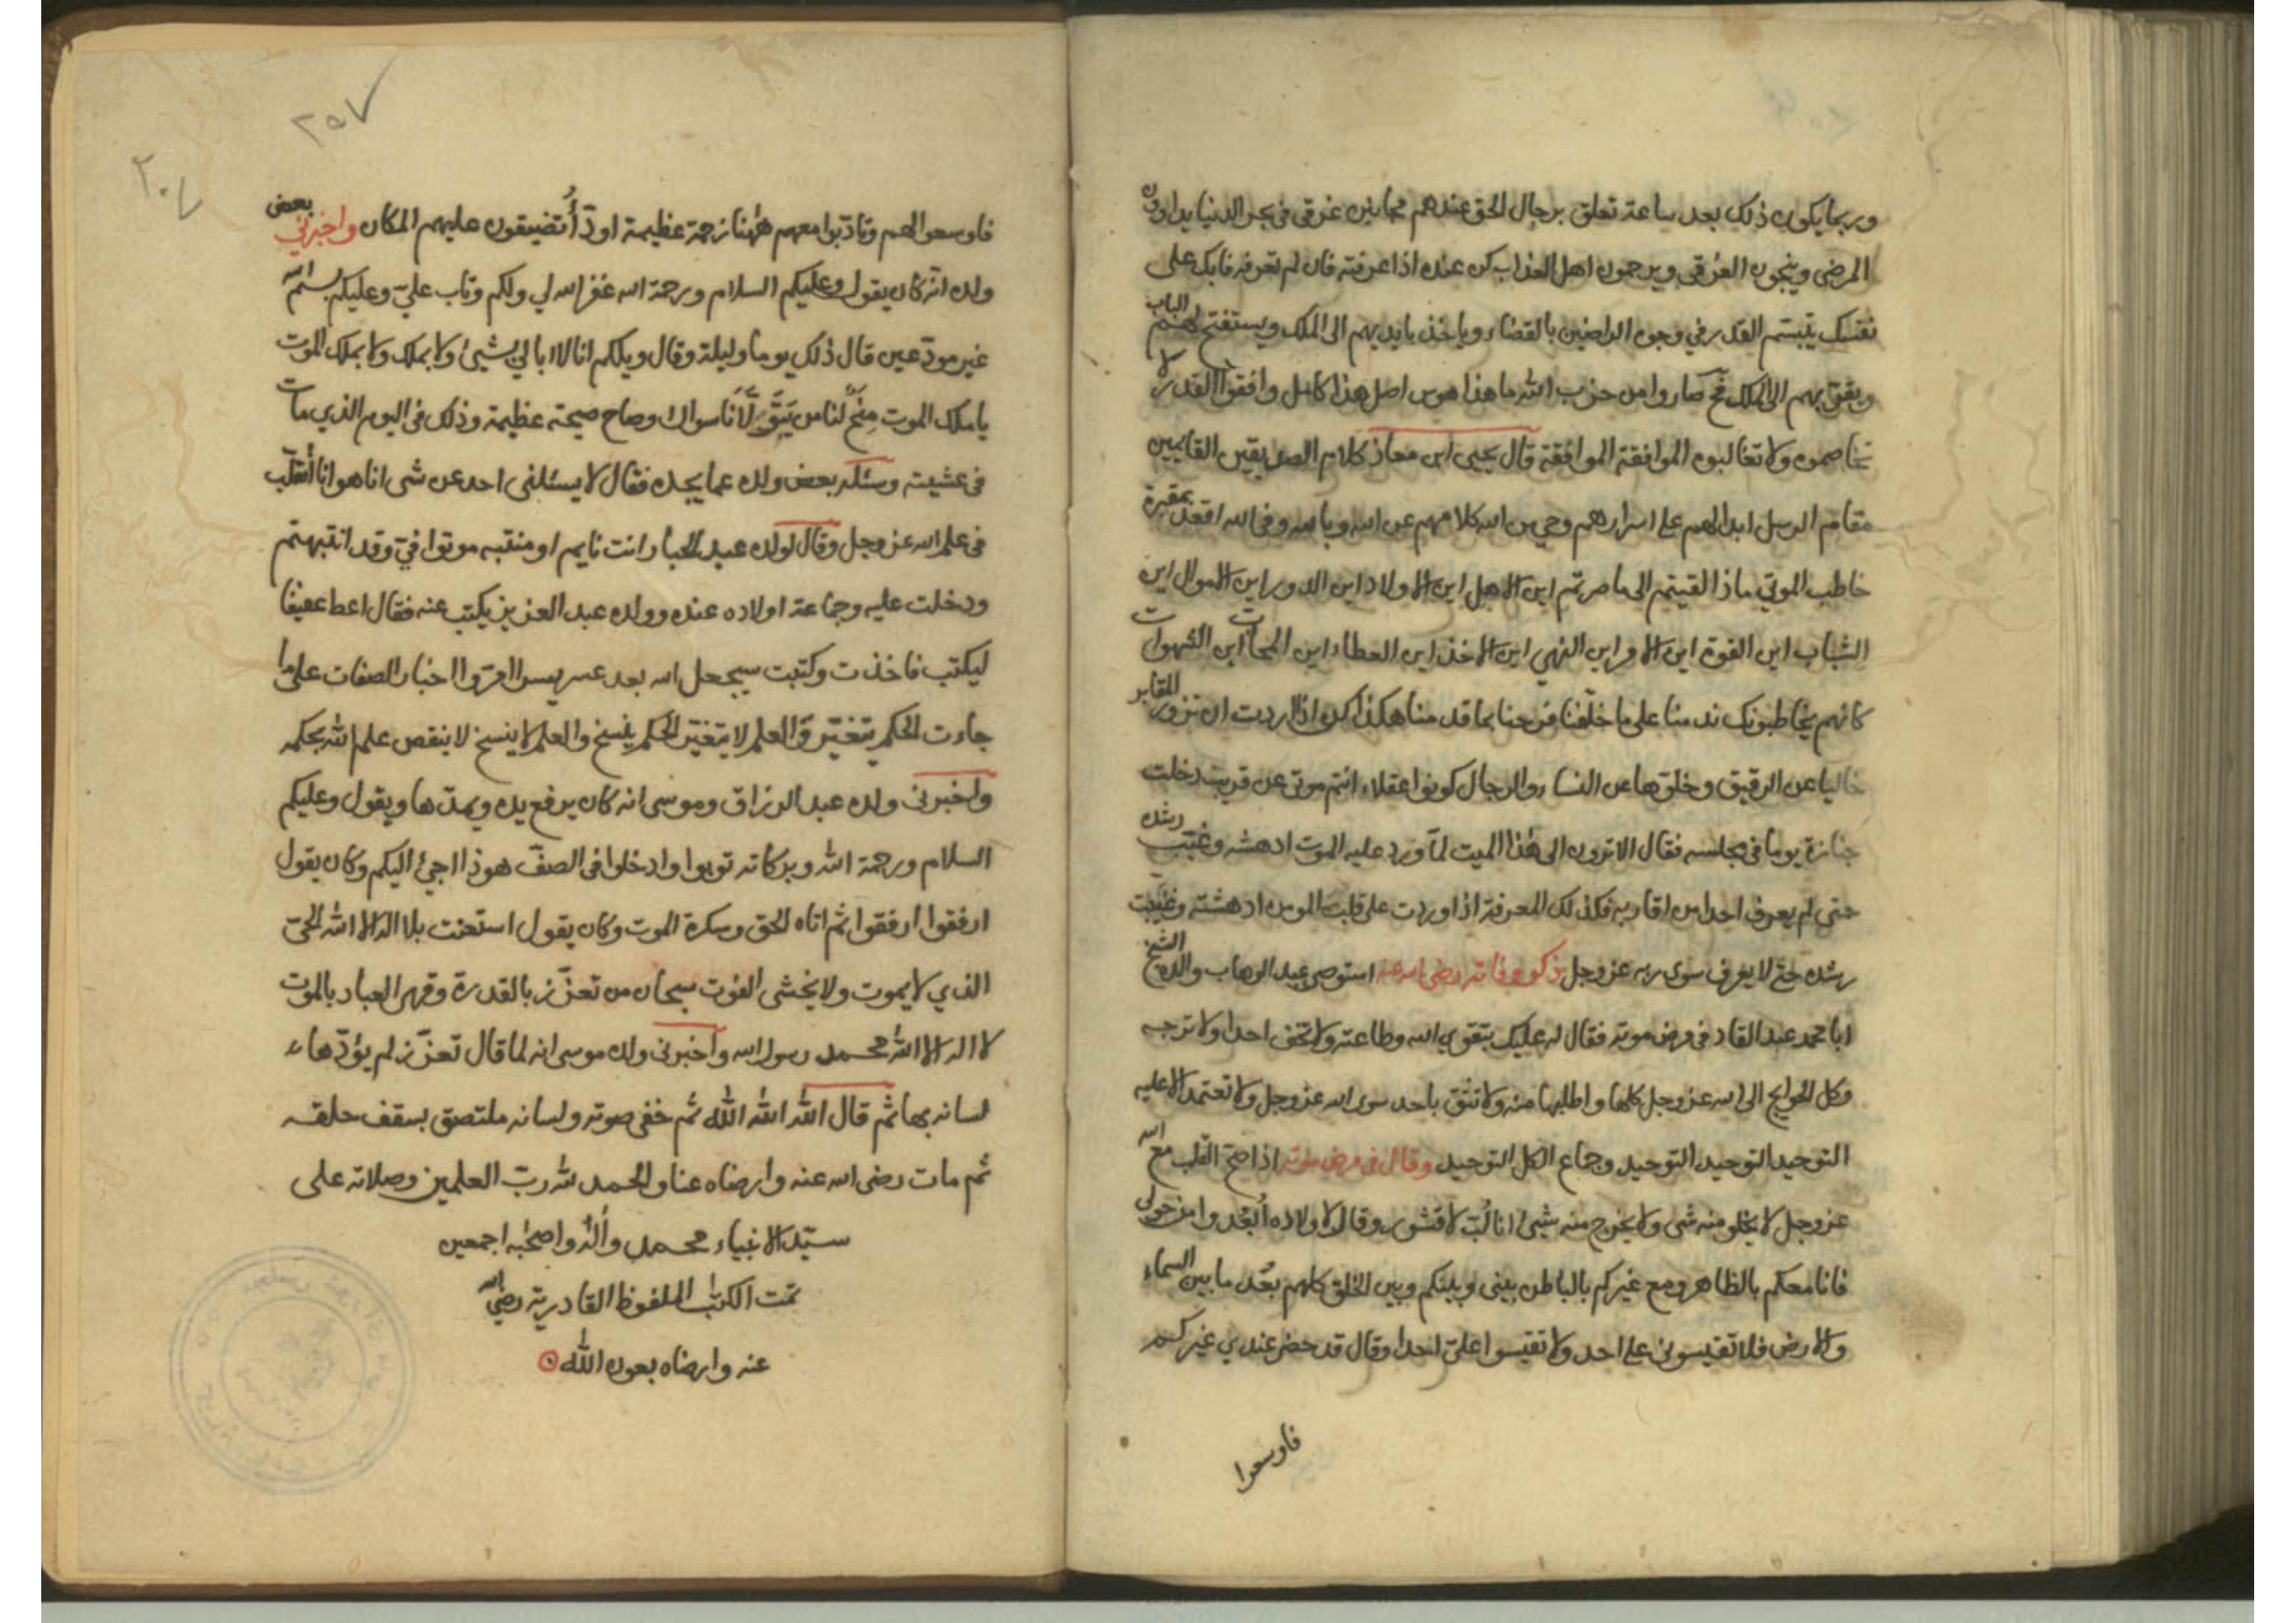 وربما يكون ذلك بعد ساعة تعلق برجال الحق عندهم مجانين غرقى في بحر الدنيا يداوون
المرضى وينجون الغرقى ويرحمون اهل العذاب كن عنده اذا عرفته فان لم تعرفه فابك على
نفسك يتبسم القدر في وجوه الراضين بالقضاء وياخذ بايديهم الى الملك ويستفتح لهم الباب
ويقربهم الى الملك فح صاروا من حزب الله ما هذا هوس اصل هذا كامل وافقوا القدر لا
تخاصموه ولا تغالبوه الموافقة الموافقة قال يحيى ابن معاذ كلام الصديقين القايمين
مقام الرسل ابدالهم على اسرارهم وحي من الله كلامهم عن الله وبالله وفي الله اقعد بمقبرة
خاطب الموتى ماذا لقيتم الى ما صرتم اين الاهل اين الاولاد اين الدور اين الاموال اين
الشباب اين القوة اين الامر اين النهي اين الاخذ اين العطاء اين المحابات اين الشهوات
كانهم يخاطبونك ندمنا على ما خلفنا فرحنا بما قدمنا هكذا كن اذا اردت ان تزور المقابر
خاليا عن الرقيق وخلوها عن النساء والرجال كونوا عقلاء انتم موتى عن قريب دخلت
جنازة يوما في مجلسه فقال الا ترون الى هذا الميت لما ورد عليه الموت ادهشه وغيب رشده
حتى لم يعرف احدا من اقاربه فكذلك المعرفة اذا وردت على قلب المومن ادهشته وغيبت
رشده حتى لا يعرف سوى ربه عز وجل ذكر وفاته رضى الله عنه استوصى عبد الوهاب والده الشيخ
ابا محمد عبد القادر في مرض موته فقال له عليك بتقوي الله وطاعته ولا تخف احدا ولا ترجه
وكل الحوايج الى الله عز وجل كلها واطلبها منه ولا تثق باحد سوى الله عز وجل ولا تعتمد الا عليه
التوحيد التوحيد التوحيد وجماع الكل التوحيد وقال في مرض موته اذا صح القلب مع الله
عز وجل لا يخلو منه شى ولا يخرج منه شيئ انا لب لا قشور وقال لاولاده ابعدوا من حولى
فانا معكم بالظاهر ومع غيركم بالباطن بينى وبينكم وبين الخلق كلهم بعد ما بين السماء
والارض فلا تقيسونى على احد ولا تقيسوا على احدا وقال قد حضر عندي غيركم
فاوسعوا
٢٥٧
٢٠٧
فاوسعوا لهم وتادبوا معهم ههنا رحمة عظيمة اود أتضيقون عليهم المكان واخبرنى بعض
ولده انه كان يقول وعليكم السلام ورحمة الله غفر الله لي ولكم وتاب علي وعليكم بسم الله
غير مودعين قال ذلك يوما وليلة وقال ويلكم انا لا ابالي بشيئ ولا بملك ولا بملك الموت
يا ملك الموت لنا من سواك وصاح صيحة عظيمة وذلك في اليوم الذي مات
في عشيته وسئله بعض ولده عما يجده فقال لا يسئلنى احد عن شى انا هو انا أتقلب
في علم الله عز وجل وقال لولده عبد الجبار انت نايم او منتبه موتوا في وقد انتبهتم
ودخلت عليه وجماعة اولاده عنده وولده عبد العزيز يكتب عنه فقال اعط عفيفا
ليكتب فاخذت وكتبت سيجعل الله بعد عسر يسرا امروا اخبار الصفات على ما
جاءت الحكم يتغير والعلم لا يتغير الحكم ينسخ والعلم لا ينسخ لا ينقص علم الله بحكمه
واخبرنى ولده عبد الرزاق وموسى انه كان يرفع يده ويمدها ويقول وعليكم
السلام ورحمة الله وبركاته توبوا وادخلوا في الصف هوذا اجئ اليكم وكان يقول
ارفقوا ارفقوا ثم اتاه الحق وسكرة الموت وكان يقول استعنت بلا اله الا الله الحي
الذي لا يموت ولا يخشى الفوت سبحان من تعزز بالقدرة وقهر العباد بالموت
لا اله الا الله محمد رسول الله واخبرنى ولده موسى انه لما قال تعزز لم يؤدها
لسانه بها ثم قال الله الله الله ثم خفى صوته ولسانه ملتصق بسقف حلقه
ثم مات رضى الله عنه وارضاه عنا والحمد لله رب العلمين وصلاته على
سيد الانبياء محمد وأله واصحبه اجمعين
تمت الكتب الملفوظ القادرية رضي الله
عنه وارضاه بعون الله